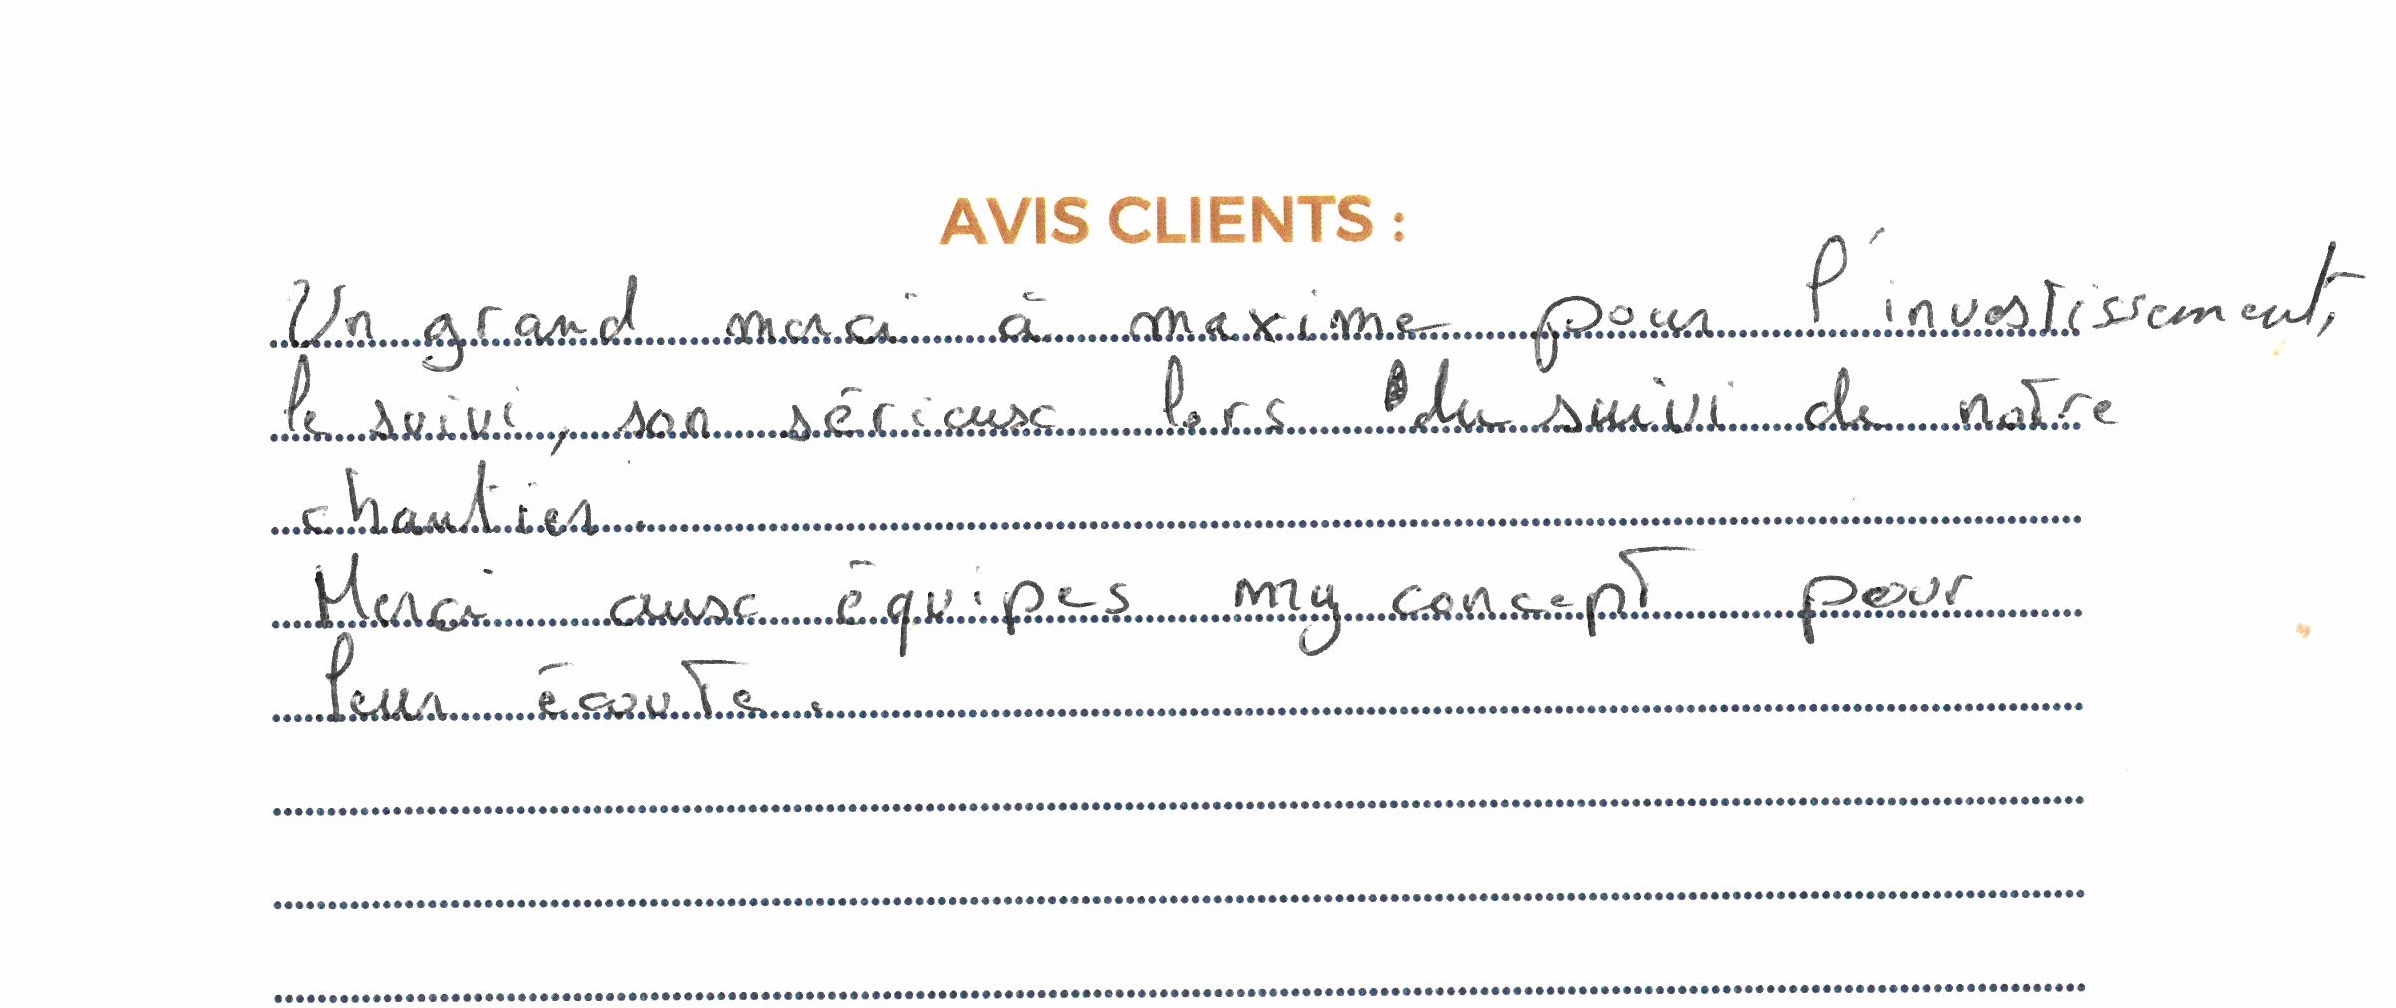 AVIS CLIENTS :
Un grand merci à maxime pour l'investissement,
le suivi, son sérieux lors du suivi de notre
chantier.
Merci aux équipes my concept pour
leur écoute.